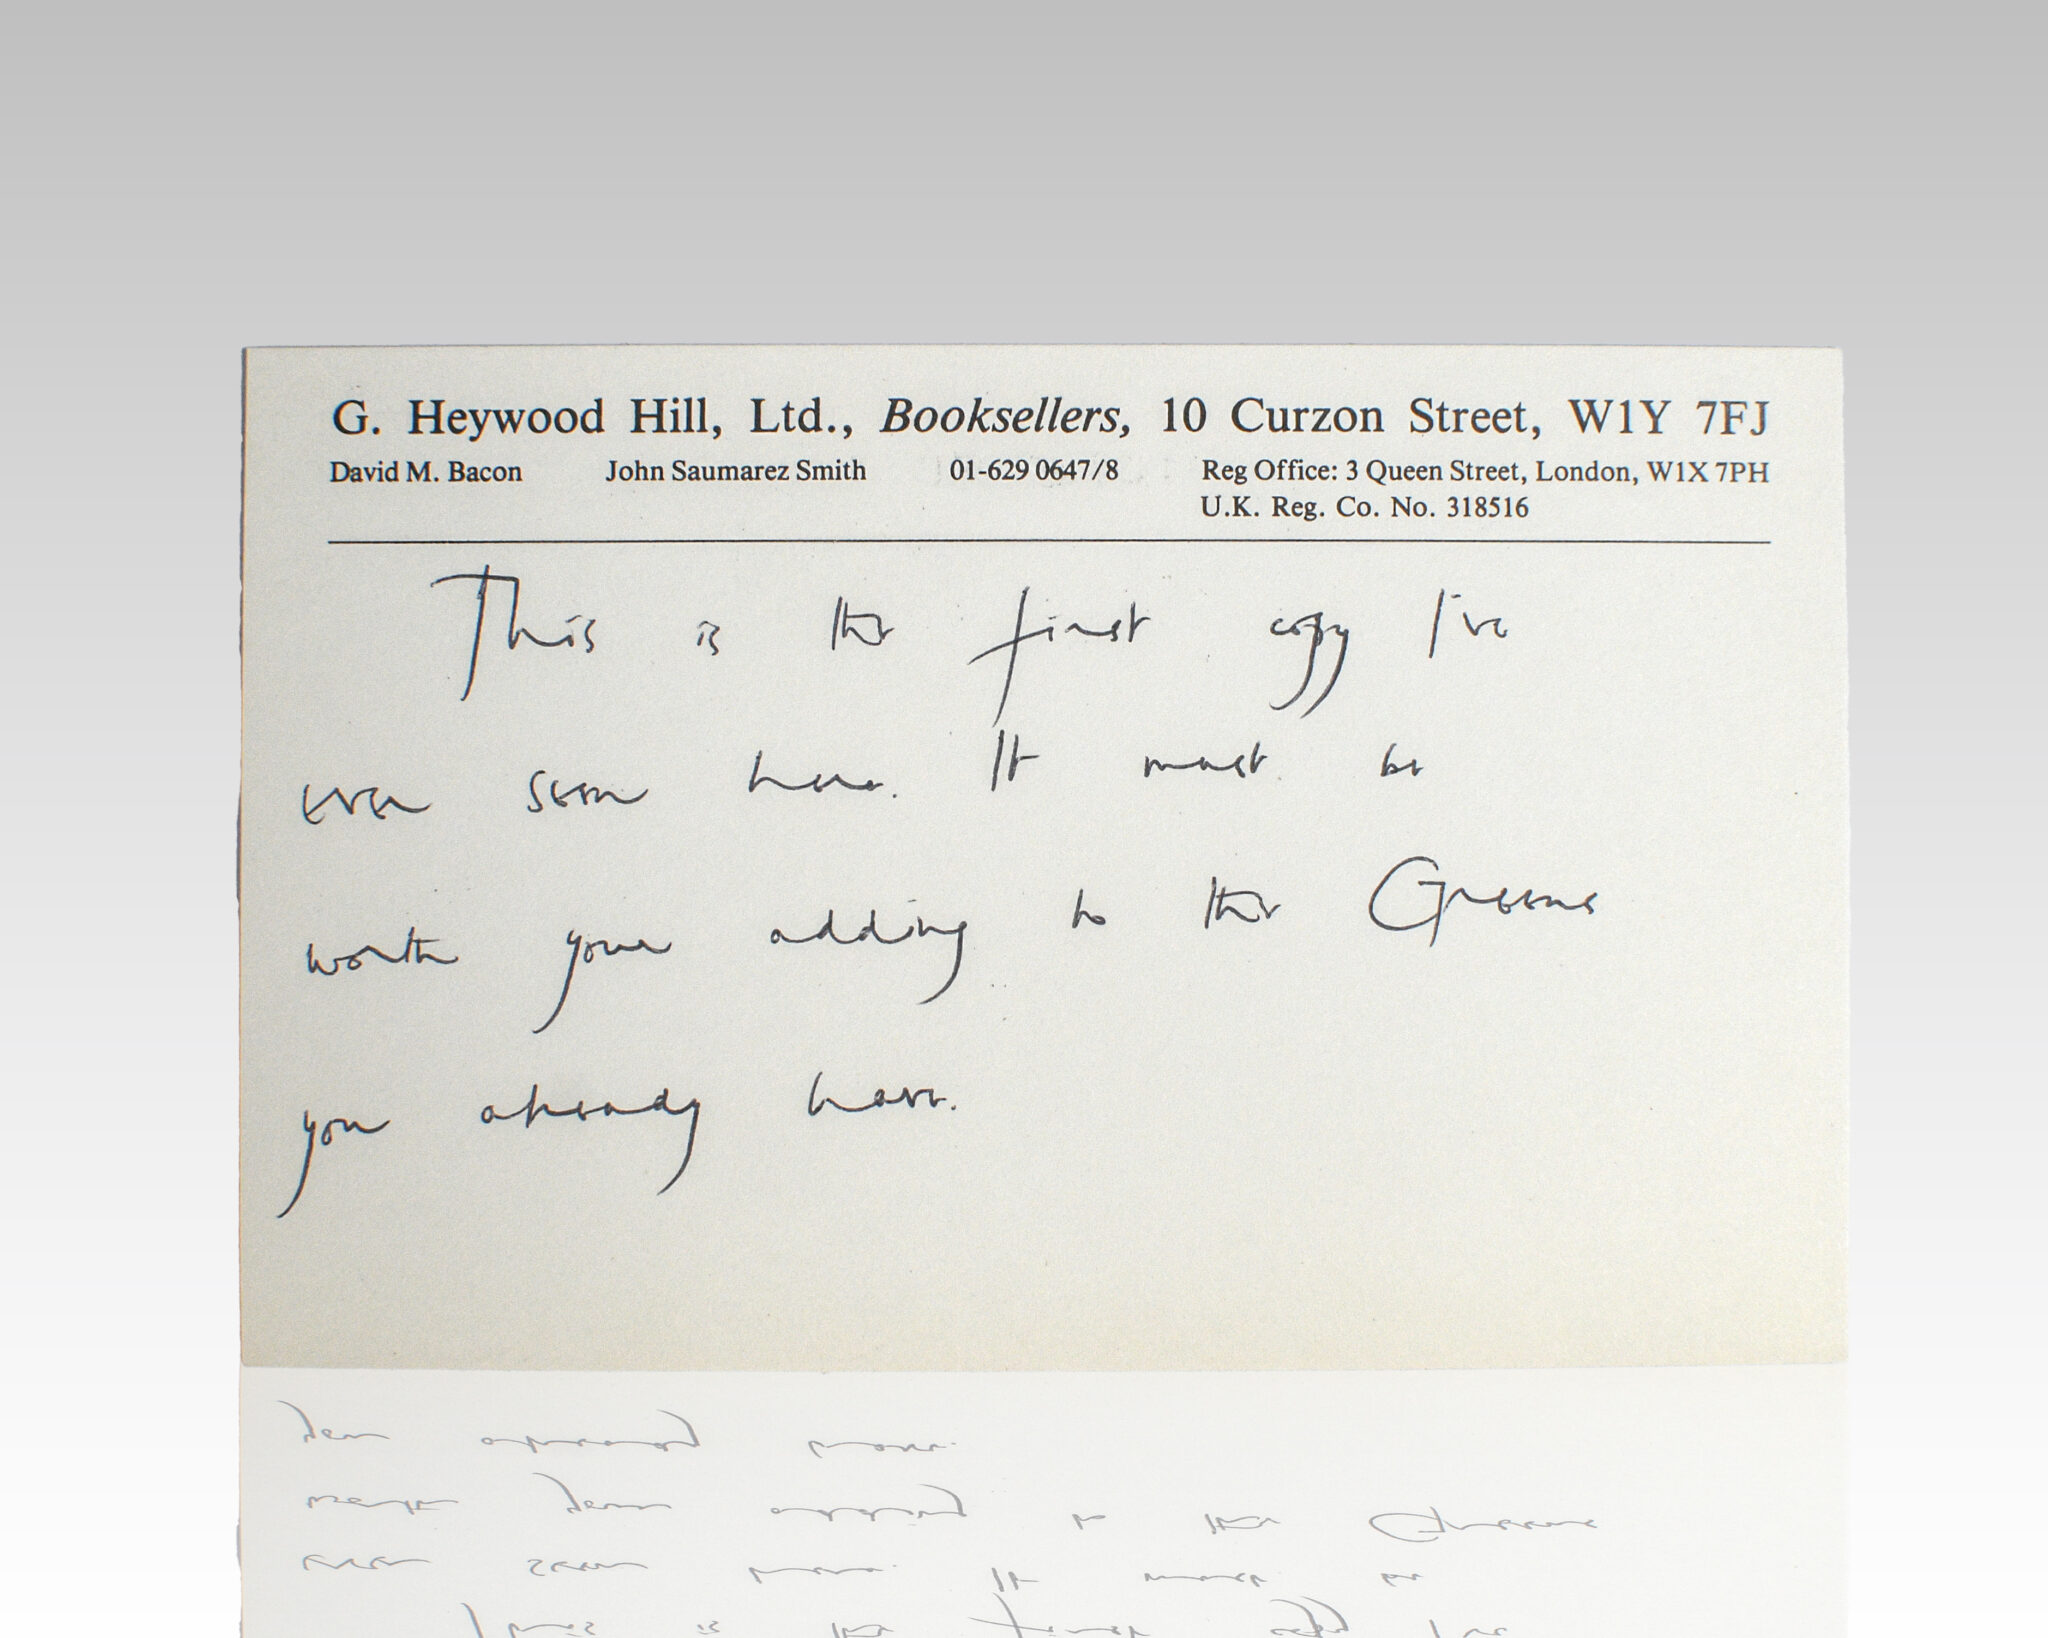 G. Heywood Hill, Ltd., Booksellers, 10 Curzon Street, W1Y 7FJ
David M. Bacon John Saumarez Smith 01-629 0647/8 Reg Office: 3 Queen Street, London, W1X 7PH
U.K. Reg. Co. No. 318516
This is the first copy I've
ever seen here. It must be
worth your adding to the Greenes
you already have.